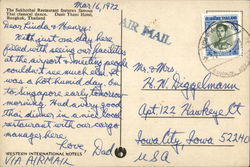 Mar/6, 1972
The Sukhothai Restaurant features famous
Thai classical dance. Dusit Thani Hotel,
Bangkok, Thailand.
Dear Linda & Henry:
With just one day here
filled with seeing our facilities
at the airport & meeting people
couldn't see much else. It
was a hot humid day. Go
to Singapore early tomorrow
morning. Had a very good
Thai dinner in a nice local
restaurant with our cargo
manager here.
Love, Dad
WESTERN INTERNATIONAL HOTELS
VIA AIRMAIL
AIR MAIL
Mr. & Mrs.
H. W. Diggelmann
Apt 122 Hawkeye Ct
Iowa City, Iowa 52240
USA